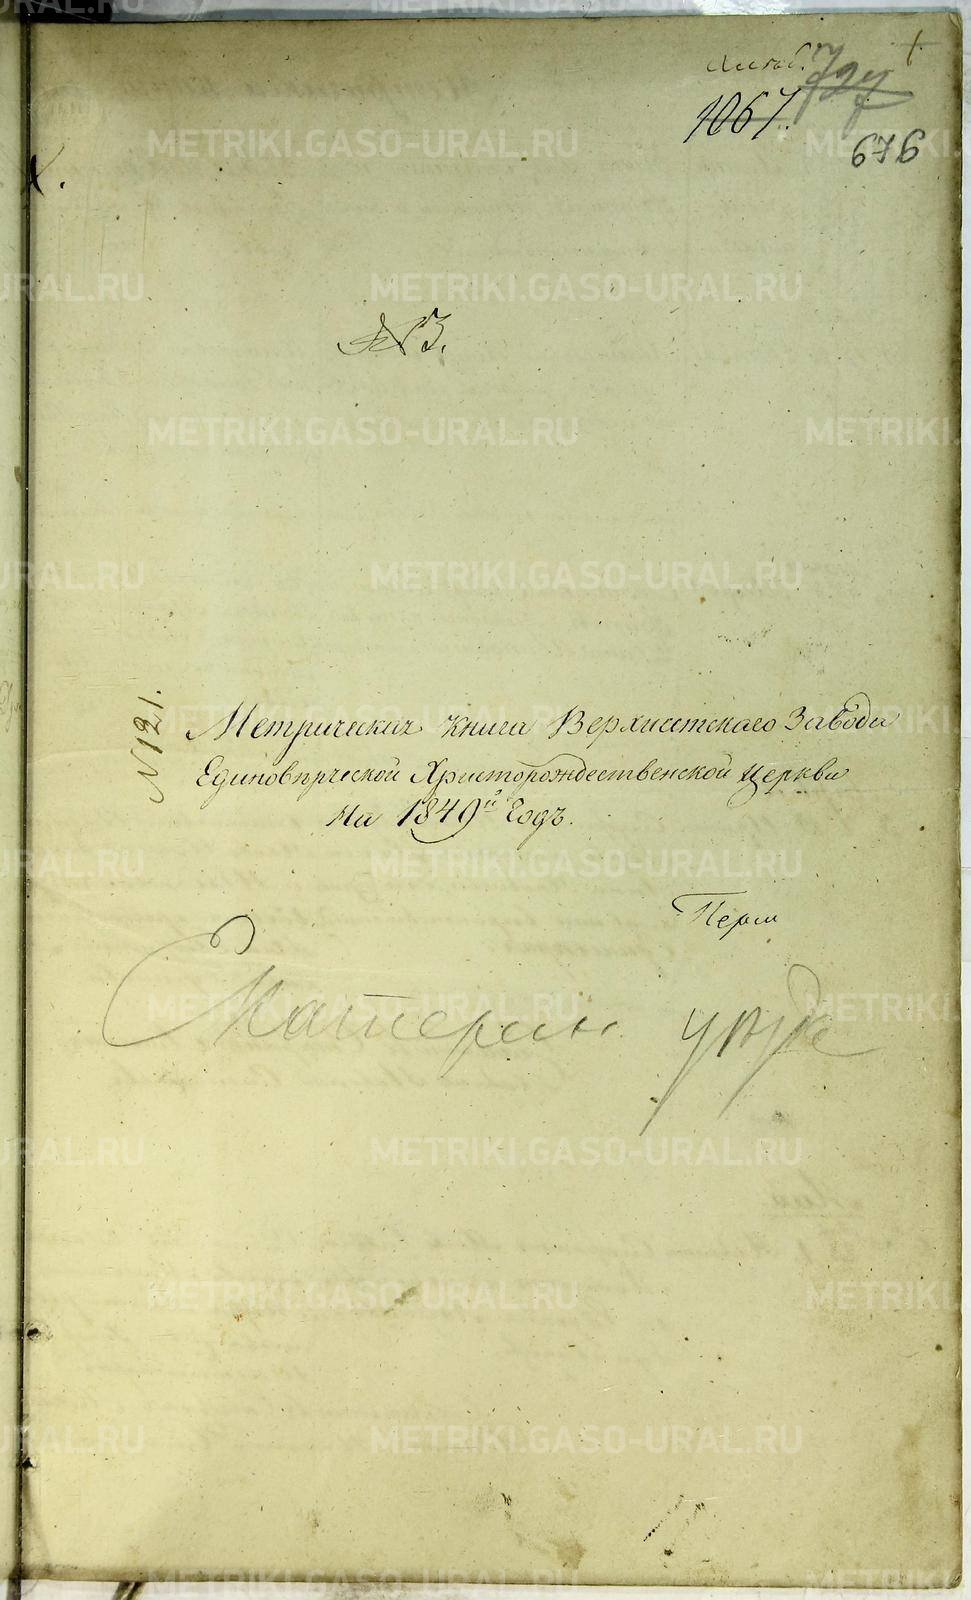 1067.
676
№ 3.
N 121.
Метрическая книга Верхисетскаго Завода
Единоверческой Христорождественской церкви
на 1849й Годъ.
Перм
Екатерин. уезда
METRIKI.GASO-URAL.RU